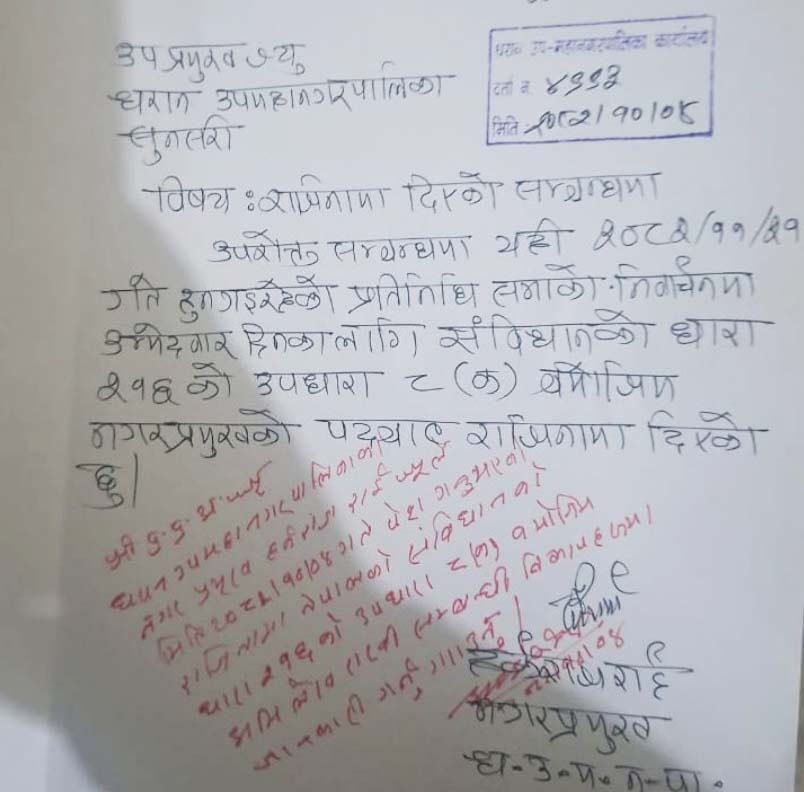 उपप्रमुख ज्यु
धरान उपमहानगरपालिका
सुनसरी
धरान उप-महानगरपालिका कार्यालय
दर्ता नं. ४९९३
मिति: २०८२/१०/०४
विषय : राजिनामा दिएको सम्बन्धमा
उपरोक्त सम्बन्धमा यही २०८२/११/२१
गते हुनगइरहेको प्रतिनिधि सभाको निर्वाचनमा
उम्मेदवार दिनका लागि संविधानको धारा
२१६ को उपधारा ८ (क) बमोजिम
नगरप्रमुखको पदबाट राजिनामा दिएको
छु।
श्री प्र.प्र.अ. ज्यू
धरान उपमहानगरपालिकाका
नगर प्रमुख हर्कराज राई ज्यूले
मिति २०८२/१०/०४ गते पेश गर्नुभएको
राजिनामा नेपालको संविधानको
धारा २१६ को उपधारा ८(क) बमोजिम
अभिलेख राखी सम्बन्धी निकायहरुमा
जानकारी गर्नु गराउनु।
राई
नगरप्रमुख
ध.उ.म.न.पा.